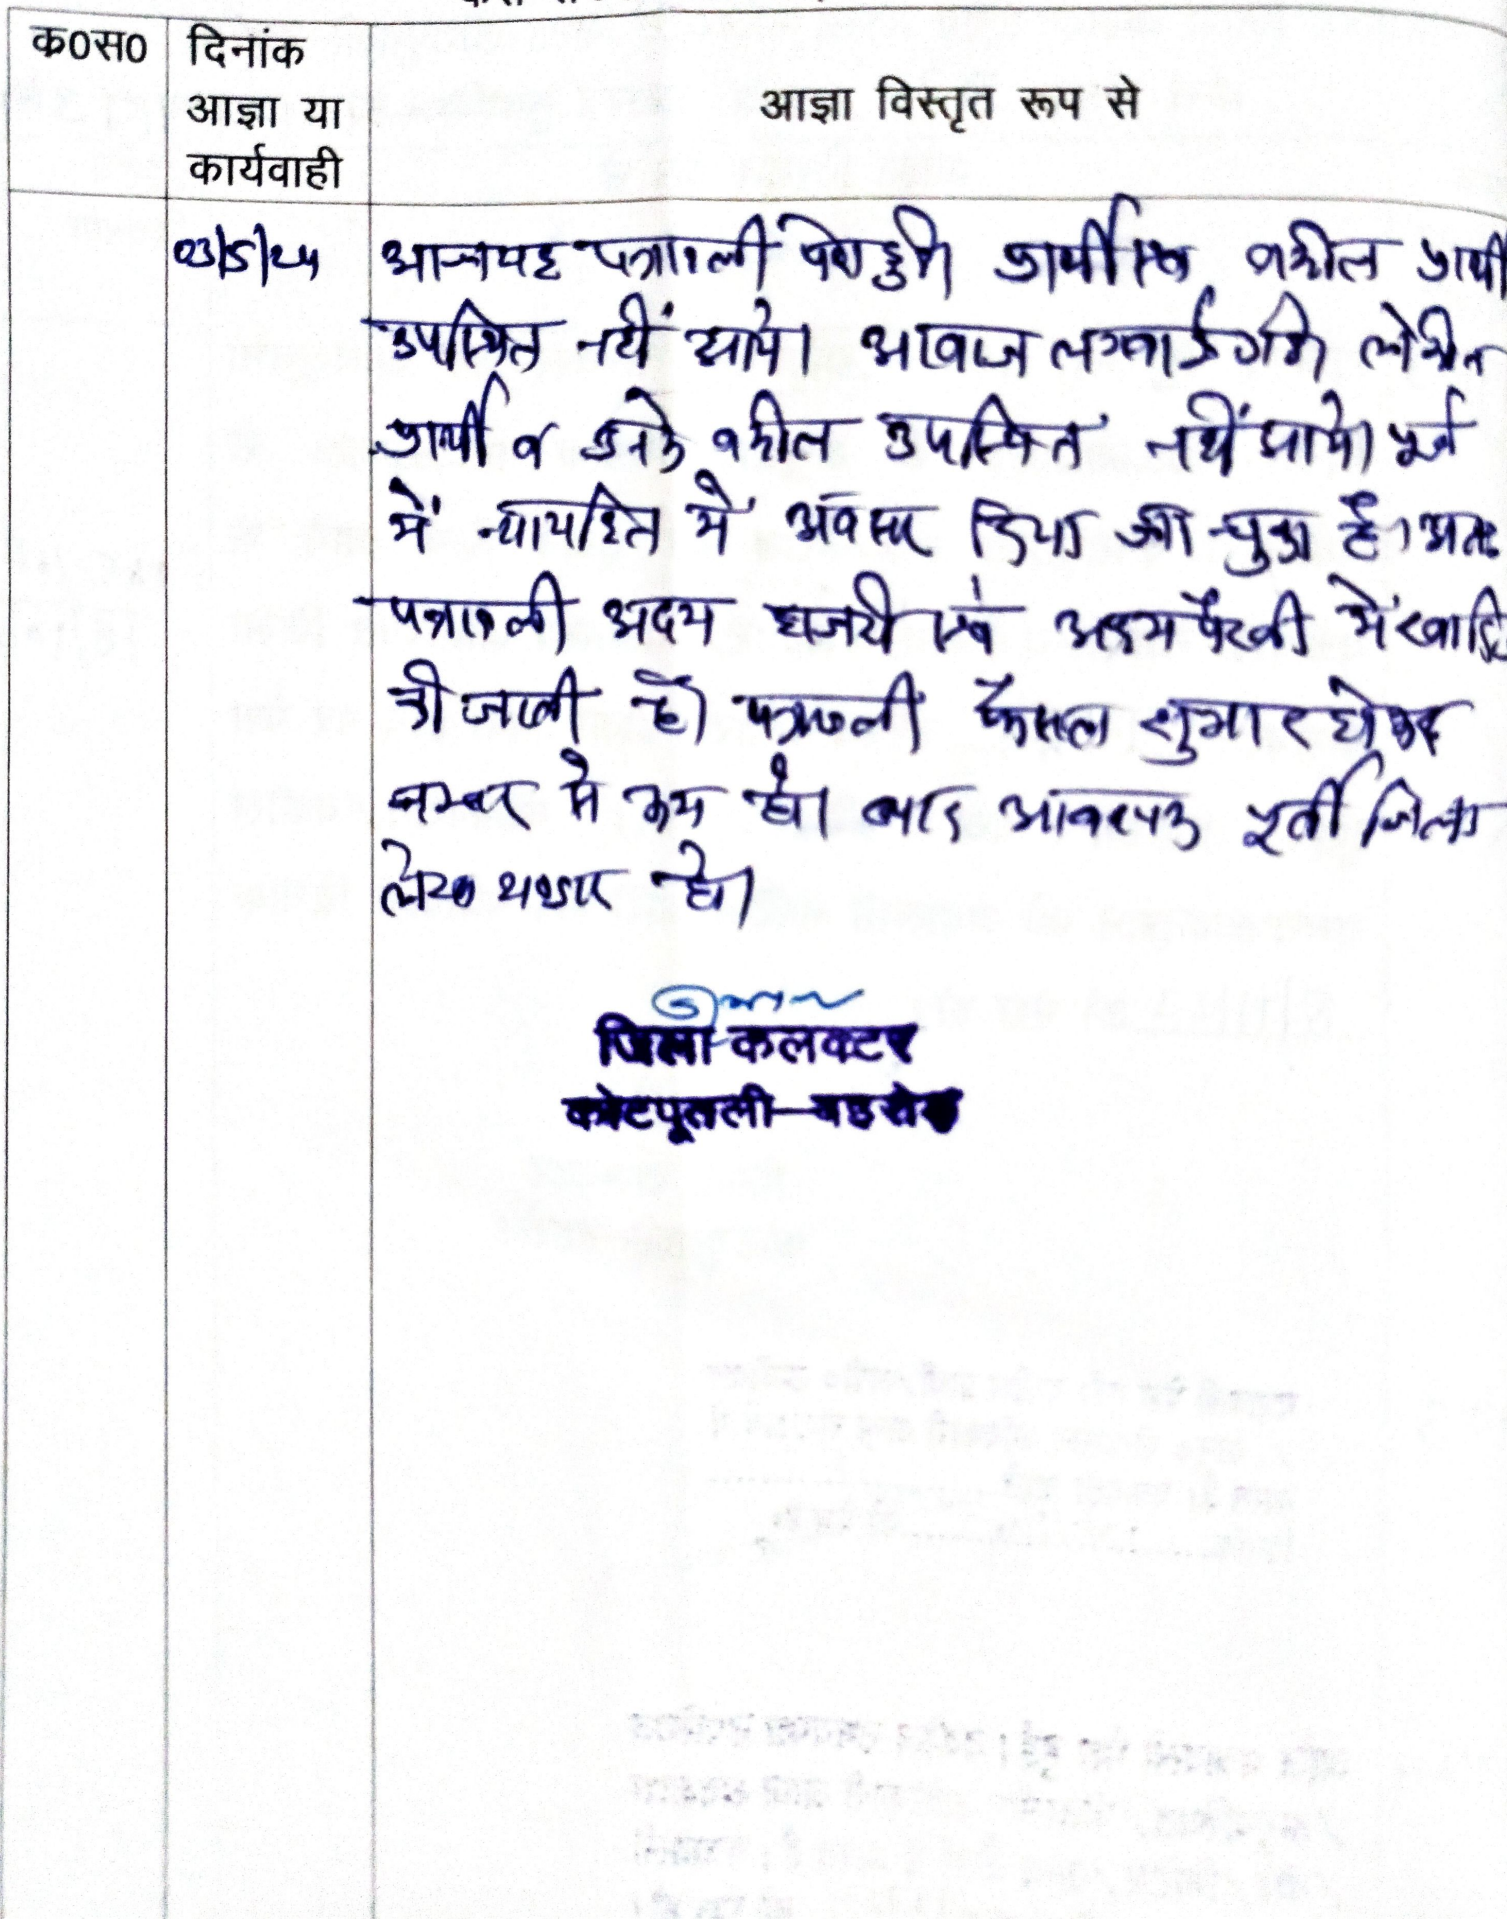 क0स0
दिनांक
आज्ञा या
कार्यवाही
आज्ञा विस्तृत रूप से
आज यह पत्रावली पेश हुयी। प्रार्थी एवं वकील प्रार्थी
उपस्थित नहीं आये। आवाज लगवाई गयी लेकिन
प्रार्थी व उनके वकील उपस्थित नहीं आये। पूर्व
में न्यायहित में अवसर दिया जा चुका है। अतः
पत्रावली अदम हाजरी एवं अदम पैरवी में
की जाती है। पत्रावली फैसल शुमार होकर
नम्बर से कम हो। बाद आवश्यक पूर्ती जिला
लेख भण्डार हो।
जिला कलक्टर
कोटपूतली-बहरोड